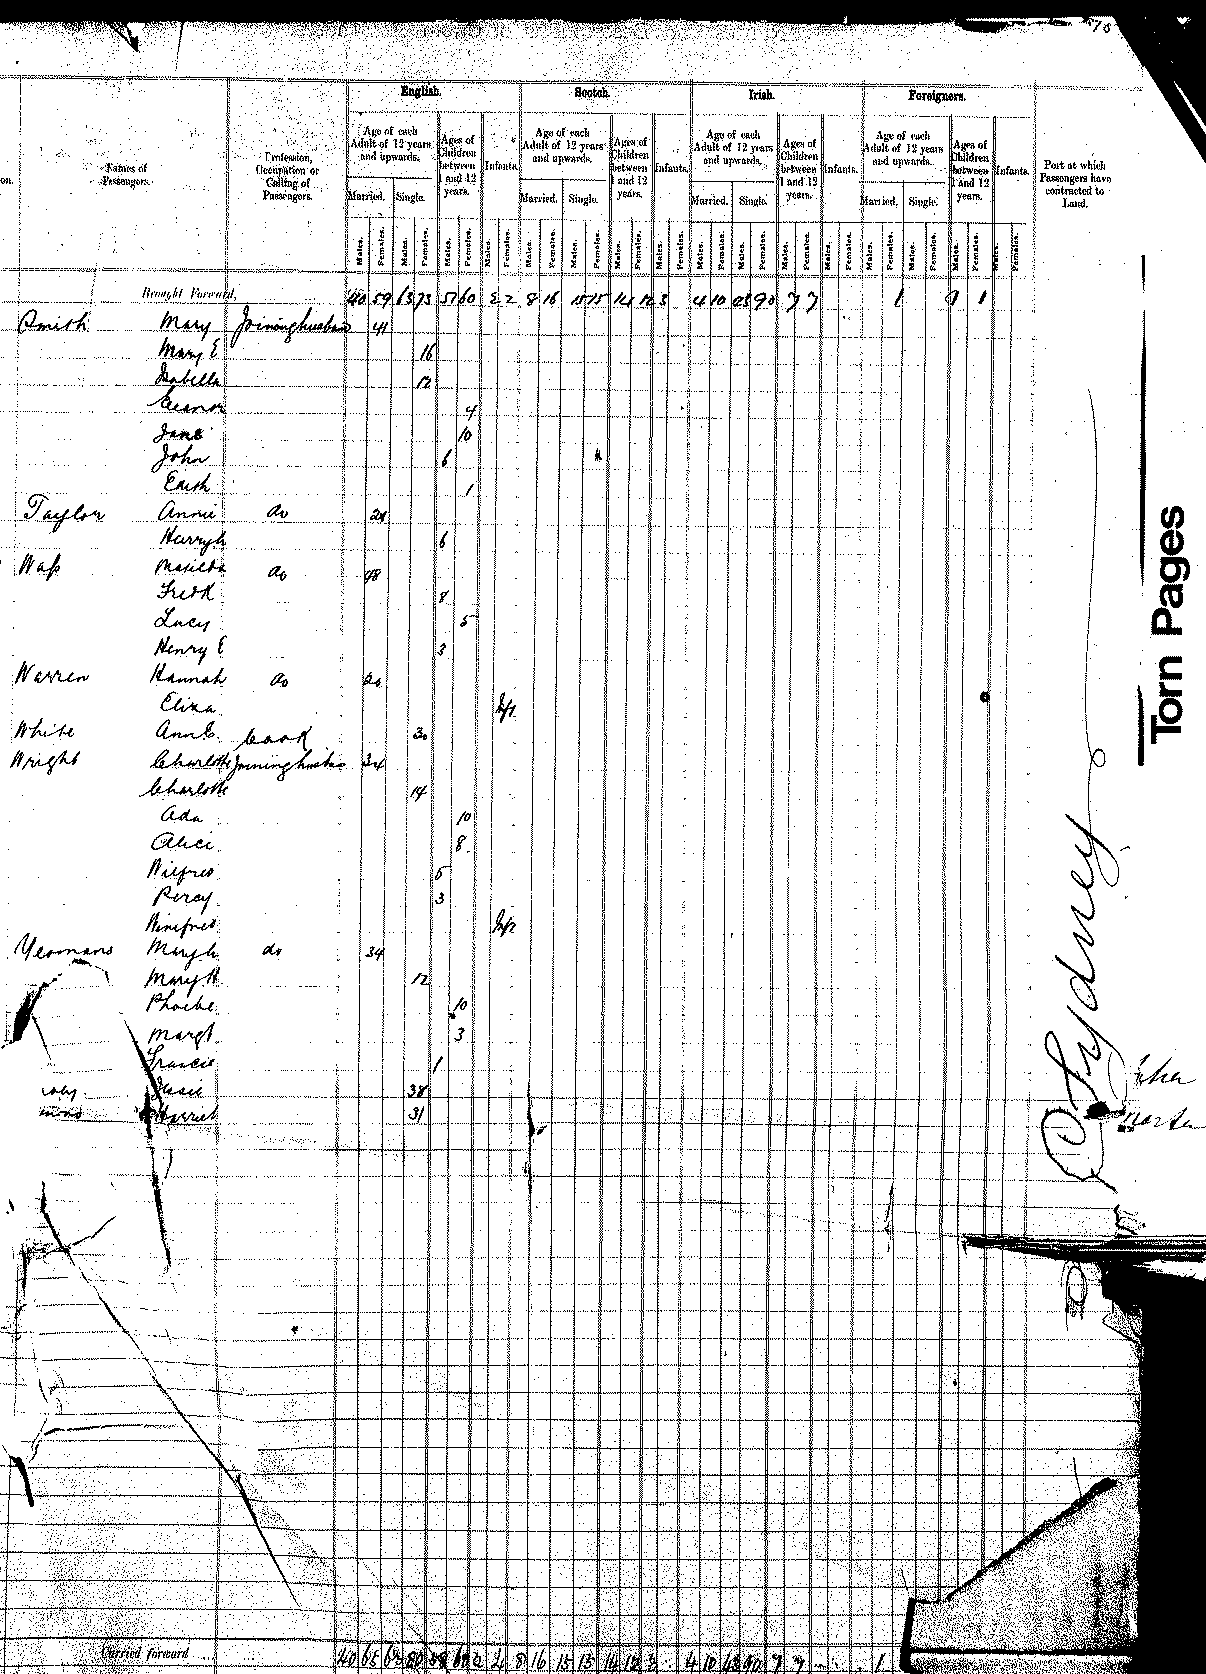 English. Scotch. Irish. Foreigners.
Names of Passengers.
Profession, Occupation or Calling of Passengers.
Age of each Adult of 12 years and upwards.
Ages of Children between 1 and 12 years.
Infants.
Age of each Adult of 12 years and upwards.
Ages of Children between 1 and 12 years.
Infants.
Age of each Adult of 12 years and upwards.
Ages of Children between 1 and 12 years.
Infants.
Age of each Adult of 12 years and upwards.
Ages of Children between 1 and 12 years.
Infants.
Port at which Passengers have contracted to Land.
on.
Married. Single. Married. Single. Married. Single. Married. Single.
Males. Females. Males. Females. Males. Females. Males. Females. Males. Females. Males. Females. Males. Females. Males. Females. Males. Females. Males. Females. Males. Females. Males. Females. Males. Females. Males. Females. Males. Females. Males. Females.
Brought Forward, 40 59 63 73 57 60 2 8 16 15 15 14 12 3 4 10 90 7 7 1 1
Smith Mary Joining husband 41
Mary E 16
Isabella 12
Eleanor 4
Jane 10
John 6
Edith 1
Taylor Annie do
Harry 6
Wass Matilda do
Fredk 8
Lucy 5
Henry E 3
Warren Hannah do
Eliza Inf
White Ann E. Cook 30
Wright Charlotte Joining husban 34
Charlotte 14
Ada 10
Alice 8
Wilfred 5
Percy 3
Winifred Inf
Yeomans Mary do 34
Mary H 12
Phoebe 10
Margt 3
Francis 1
Jessie 38
Harriet 31
Sydney
Torn Pages
Carried forward 40 65 80 8 16 15 15 14 12 3 4 10 90 7 7 1